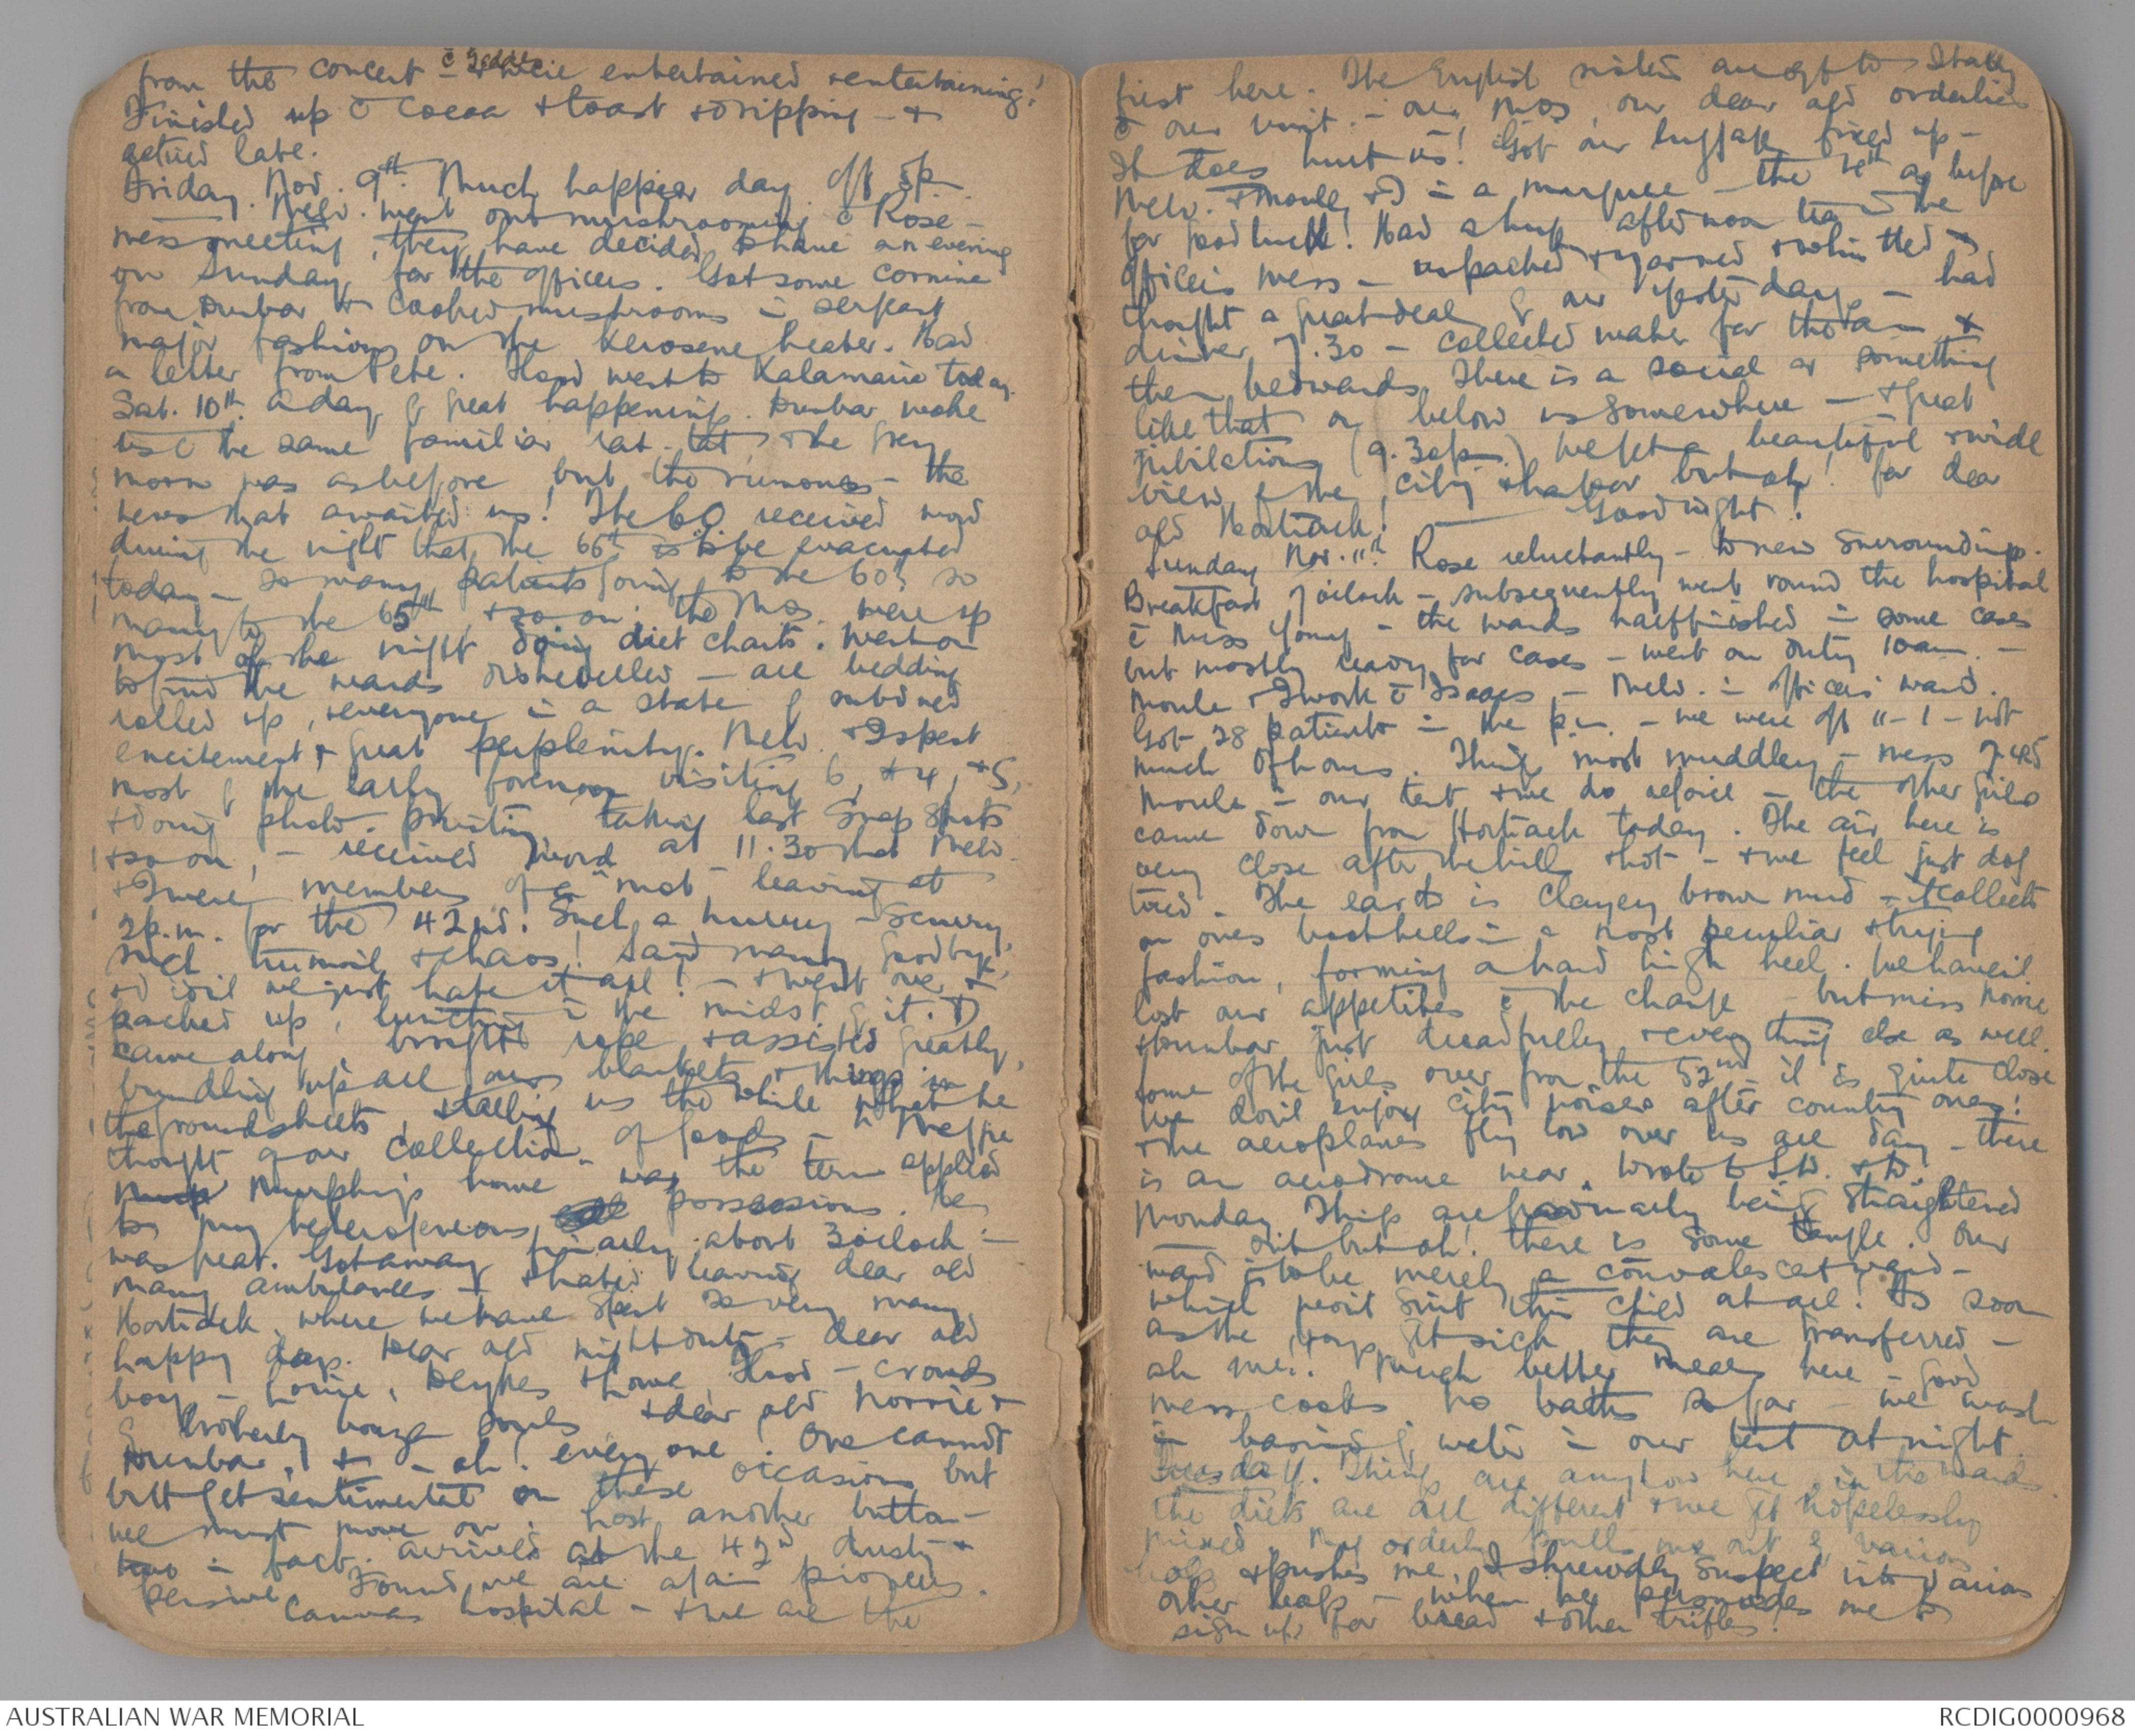 from the concert - c̄ Geddes & were entertained & entertaining!
Finished up c̄ cocoa & toast & dripping - &
retired late.
Friday. Nov. 9th. Much happier day. Off 5p.
Melv. went out mushrooming c̄ Rose -
mess meeting, they have decided to have an evening
on Sunday, for the officers. Got some cornine
from Dunbar & cooked mushrooms in sergeant
major fashion, on the kerosene heater. Had
a letter from Pete. Hood went to Kalamaria today.
Sat. 10th. A day of great happenings. Dunbar woke
us c̄ the same familiar rat-tat, & the grey
morn was as before but the rumours - the
news that awaited us! The CO received word
during the night that the 66th is to be evacuated
today - so many patients going to the 60th, so
many to the 65th, & so on, the MOs. were up
most of the night doing diet charts. Went on
to find the wards dishevelled - all bedding
rolled up, & everyone in a state of subdued
excitement & great perplexity. Melv. & I spent
most of the early forenoon visiting 6, & 4, & 5,
& doing photo-printing, taking last snap shots
& so on, - received word at 11.30 that Melv.
& I were members of a "mob" leaving at
2p.m. for the 42nd. Such a hurry - scurry,
such turmoil & chaos! Said many goodbyes,
& didn't we just hate it all! - & went over &
packed up, lunching in the midst of it. D
came along, brought rope & assisted greatly,
bundling up all our blankets & things in
the groundsheets, & telling us the while what he
thought of our collection of goods - "McGee
Murphy's home" was the term applied
to my heterogeneous possessions. He
was great. Got away finally about 3 o'clock in
many ambulances - & hated leaving dear old
Hortiach, where we have spent so very many
happy days. Dear old night duty - dear old
boys - Lorrie, Deykes & Howe, Hood - crowds
of brotherly bonza souls & dear old Norrie &
Dunbar, & - oh! everyone! One cannot
but get sentimental on these occasions but
we must move on. Lost another button -
two in fact. Arrived at the 42nd dusty &
pensive. Found we are again pioneers.
Canvas hospital - & we are the
first here. The English sisters are off to Italy
c̄ our unit. - our MOs, our dear old orderlies
It does hurt us! Got our luggage fixed up -
Melv. & Moule & I in a marquee - the 4th as before
for good luck! Had a huge afternoon tea in the
officers mess - unpacked & yarned & whistled &
thought a great deal of our yesterdays - had
dinner 7.30 - collected water for the am &
then bedwards. There is a social or something
like that on below us somewhere - & great
jubilation (9.30pm.) We get a beautiful & wide
view of the city & harbor but oh! for dear
old Hortiach! Goodnight!
Sunday Nov. 11th. Rose reluctantly - to new surroundings.
Breakfast 7 o'clock - subsequently went round the hospital
c̄ Miss Young - the wards half finished in some cases
but mostly ready for cases - went on duty 10am. -
Moule & I work c̄ Isaacs - Melv. in officers' ward.
Got 28 patients in the p.m. - we were off 11-1 - not
much of hours. Things most muddley - mess
Moule in our tent & we do rejoice - the other girls
came down from Hortiach today. The air here is
very close after the hills & hot - & we feel just dog
tired. The earth is clayey brown mud - it collects
on ones boot heels in a most peculiar & trying
fashion, forming a hard high heel. We haven't
lost our appetites c̄ the change - but miss Norrie
& Dunbar just dreadfully & everything else as well.
Some of the girls over from the 52nd - it is quite close
We don't enjoy city noises after country ones!
& the aeroplanes fly low over us all day - there
is an aerodrome near. Wrote to
Monday. Things are gradually being straightened
out but oh! there is some tangle. Our
ward is to be merely a convalescent ward -
which won't suit this child at all! As soon
as the boys get sick they are transferred -
ah me! Much better meals here - good
mess cooks. No baths so far - we wash
in basins of water in our tent at night.
Tuesday. Things are anyhow here, in the wards
the diets are all different & we get hopelessly
mixed. My orderly pulls me out of various
holes & pushes me, I shrewdly suspect into various
other holes - when he persuades me to
sign up for bread & other trifles!
AUSTRALIAN WAR MEMORIAL
RCDIG0000968